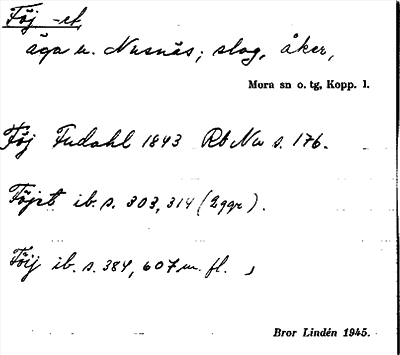 Föj -et,
äga u. Nusnäs; slog, åker,
Mora sn o. tg, Kopp. l.
Föj Fudahl 1843 Rb Nu s. 176.
Föjet ib. s. 303, 314 (2 ggr).
Föij ib. s. 384, 607 m. fl.
Bror Lindén 1945.